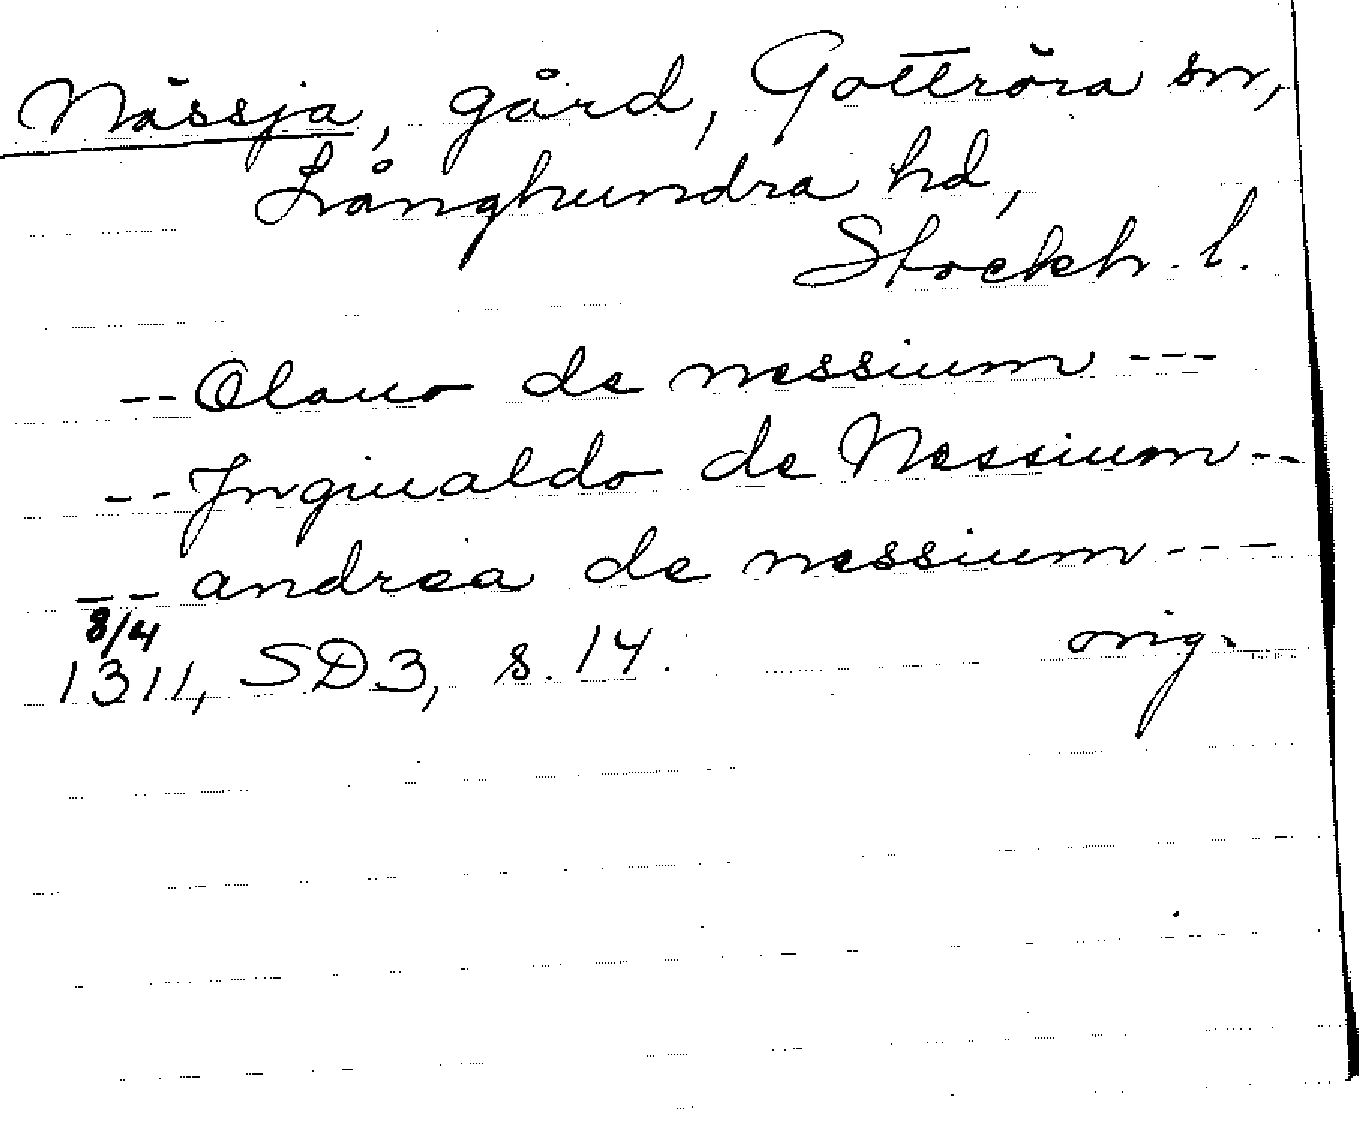 Nässja, gård, Gottröra sn,
Långhundra hd,
Stockh. l.
-- Olauo de nessium ---
-- Jngiualdo de Nessium --
-- andrea de nessium ---
8/4
1311, SD3, s. 14. orig.